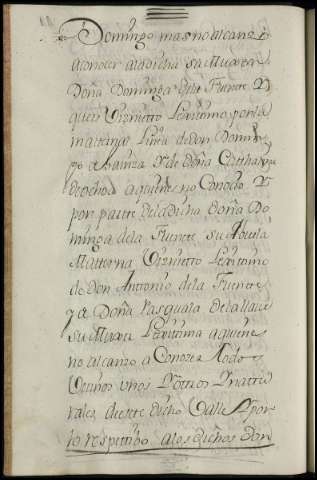 Domingo mas no alcanzè
aconocer aladicha su Muxer
Doña Dominga dela Fuente Y
que es Viznietto Lexittimo por la
matterna Linea de don Domin
go de y de Doña Catthalina
de ochoa aquienes no Conocio Y
por partte dela dicha doña Do
minga dela Fuente su Abuela
Matterna Viznietto Lexittimo
de don Antonio dela Fuente
y de Doña Pasquala dela llave
su Muxer Lexittima aquienes
no alcanzo a Conozer todos
Vecinos Vnos Y ottros Y natu
rales de estte dicho Valle Y por
lo respettibo alos dichos Don